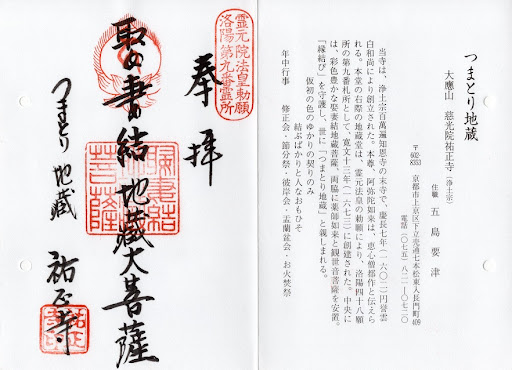 つまとり地蔵
大應山　慈光院祐正寺（浄土宗）
住職　五島要津
〒602-8353　京都市上京区下立売通七本松東入長門町409
電話（〇七五）八二一-〇七二〇
当寺は、浄土宗百萬遍知恩寺の末寺で、慶長七年（一六〇二）円誉雲
白和尚により創立された。本尊、阿弥陀如来は、恵心僧都作と伝えら
れる。本堂の右際の地蔵堂は、霊元法皇の勅願により、洛陽四十八願
所の第九番札所として、寛文十三年（一六七三）に創建された。中央に
は、彩色豊かな娶妻結地蔵菩薩、両脇に薬師如来と観世音菩薩を安置。
「縁結び」を守護し、世に「つまとり地蔵」と親しまれる。
仮初の色のゆかりの契りのみ
結ぶばかりと人なおもひそ
年中行事　修正会・節分祭・彼岸会・盂蘭盆会・お火焚祭
霊元院法皇勅願
洛陽第九番霊所
奉拝
地蔵大菩薩
つまとり地蔵
祐正寺